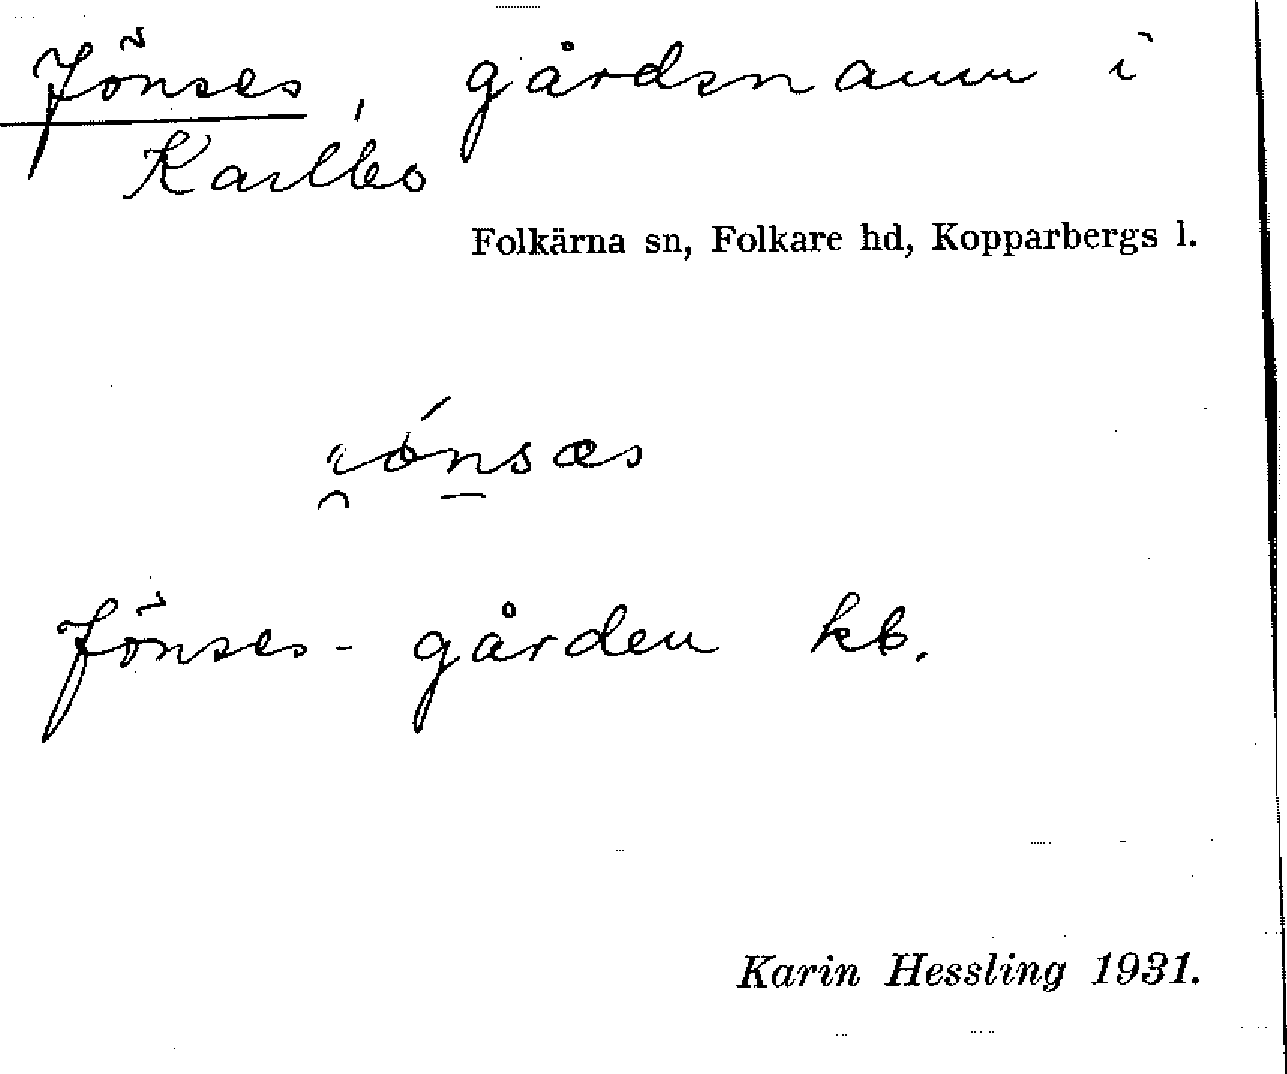 Jönses, gårdsnamn i
Karlbo
Folkärna sn, Folkare hd, Kopparbergs l.
Jönses-gården kb.
Karin Hessling 1931.